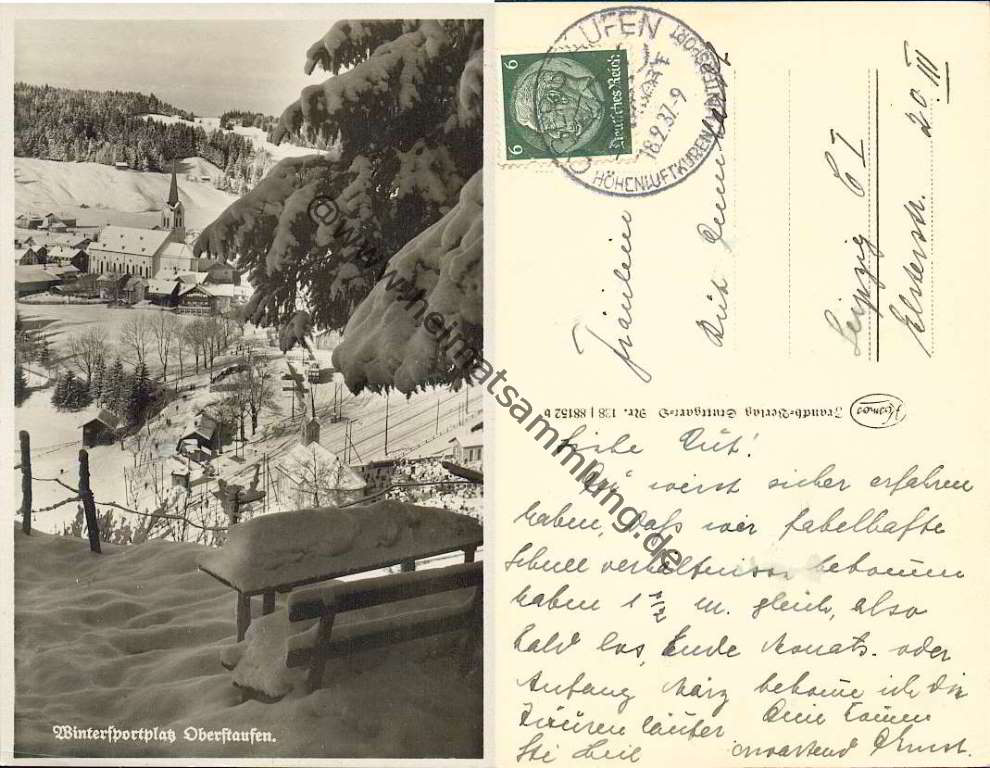 Wintersportplatz Oberstaufen.
@ www.heimatsammlung.de
6 6
Deutsches Reich
18.2.37.-9
HÖHENLUFTKURORT
Fräulein
Leipzig C I
Elsterstr. 20 III
Kosmos
Franckh-Verlag Stuttgart-O Nr. 128 | 88152 b
Liebe Rut!
Du wirst sicher erfahren
haben, daß wir fabelhafte
Schneeverhältnisse bekommen
haben 1 1/2 m. gleich, also
bald los, Ende Monats oder
Anfang März bekomme ich die
Dein Kommen
Ski Heil erwartend Ernst.